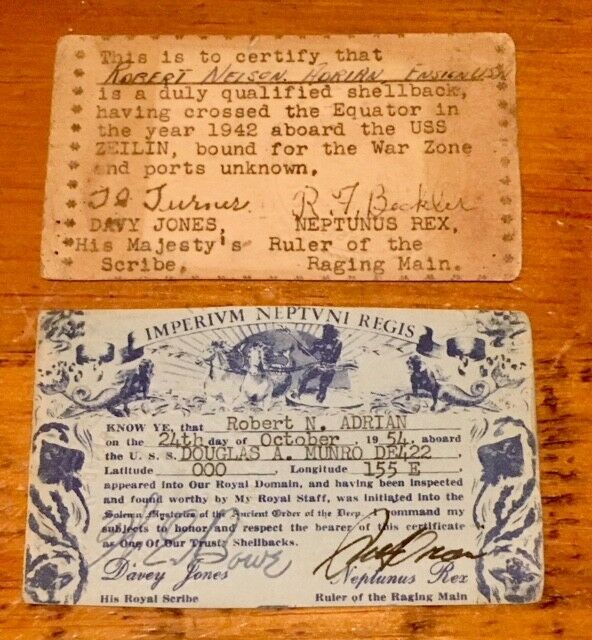 This is to certify that
ROBERT NELSON ADRIAN ENSIGN USN
is a duly qualified shellback,
having crossed the Equator in
the year 1942 aboard the USS
ZEILIN, bound for the War Zone
and ports unknown.
Turner R. F. Beckler
DAVY JONES, NEPTUNUS REX,
His Majesty's Ruler of the
Scribe, Raging Main.
IMPERIVM NEPTVNI REGIS
KNOW YE, that Robert N. ADRIAN
on the 24th day of October 1954, aboard
the U. S. S. DOUGLAS A. MUNRO DE422
Latitude 000 Longitude 155 E
appeared into Our Royal Domain, and having been inspected
and found worthy by My Royal Staff, was initiated into the
Solemn Mysteries of the Ancient Order of the Deep. I command my
subjects to honor and respect the bearer of this certificate
as One Of Our Trusty Shellbacks.
Davey Jones Neptunus Rex
His Royal Scribe Ruler of the Raging Main